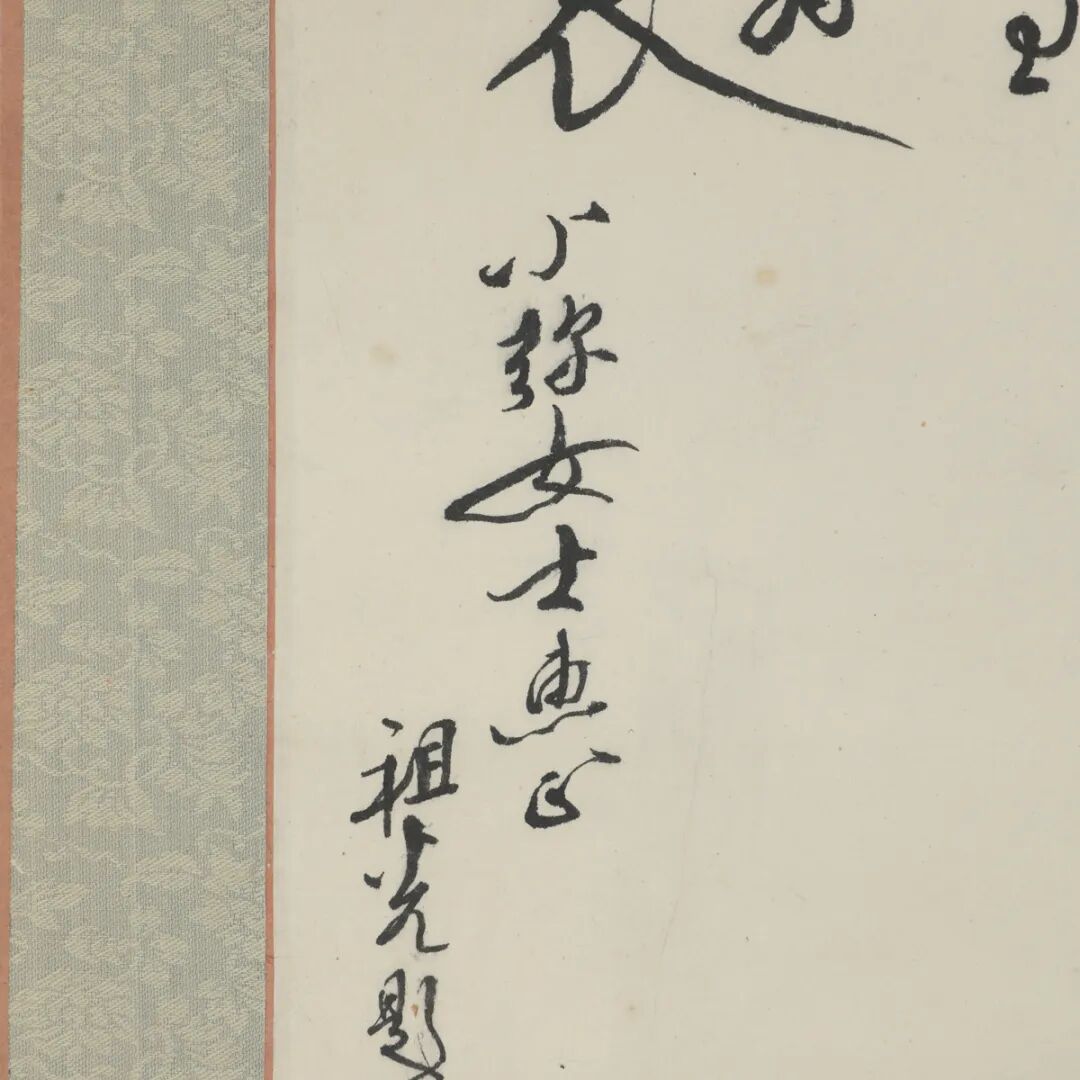 小弥女士惠正
祖光题